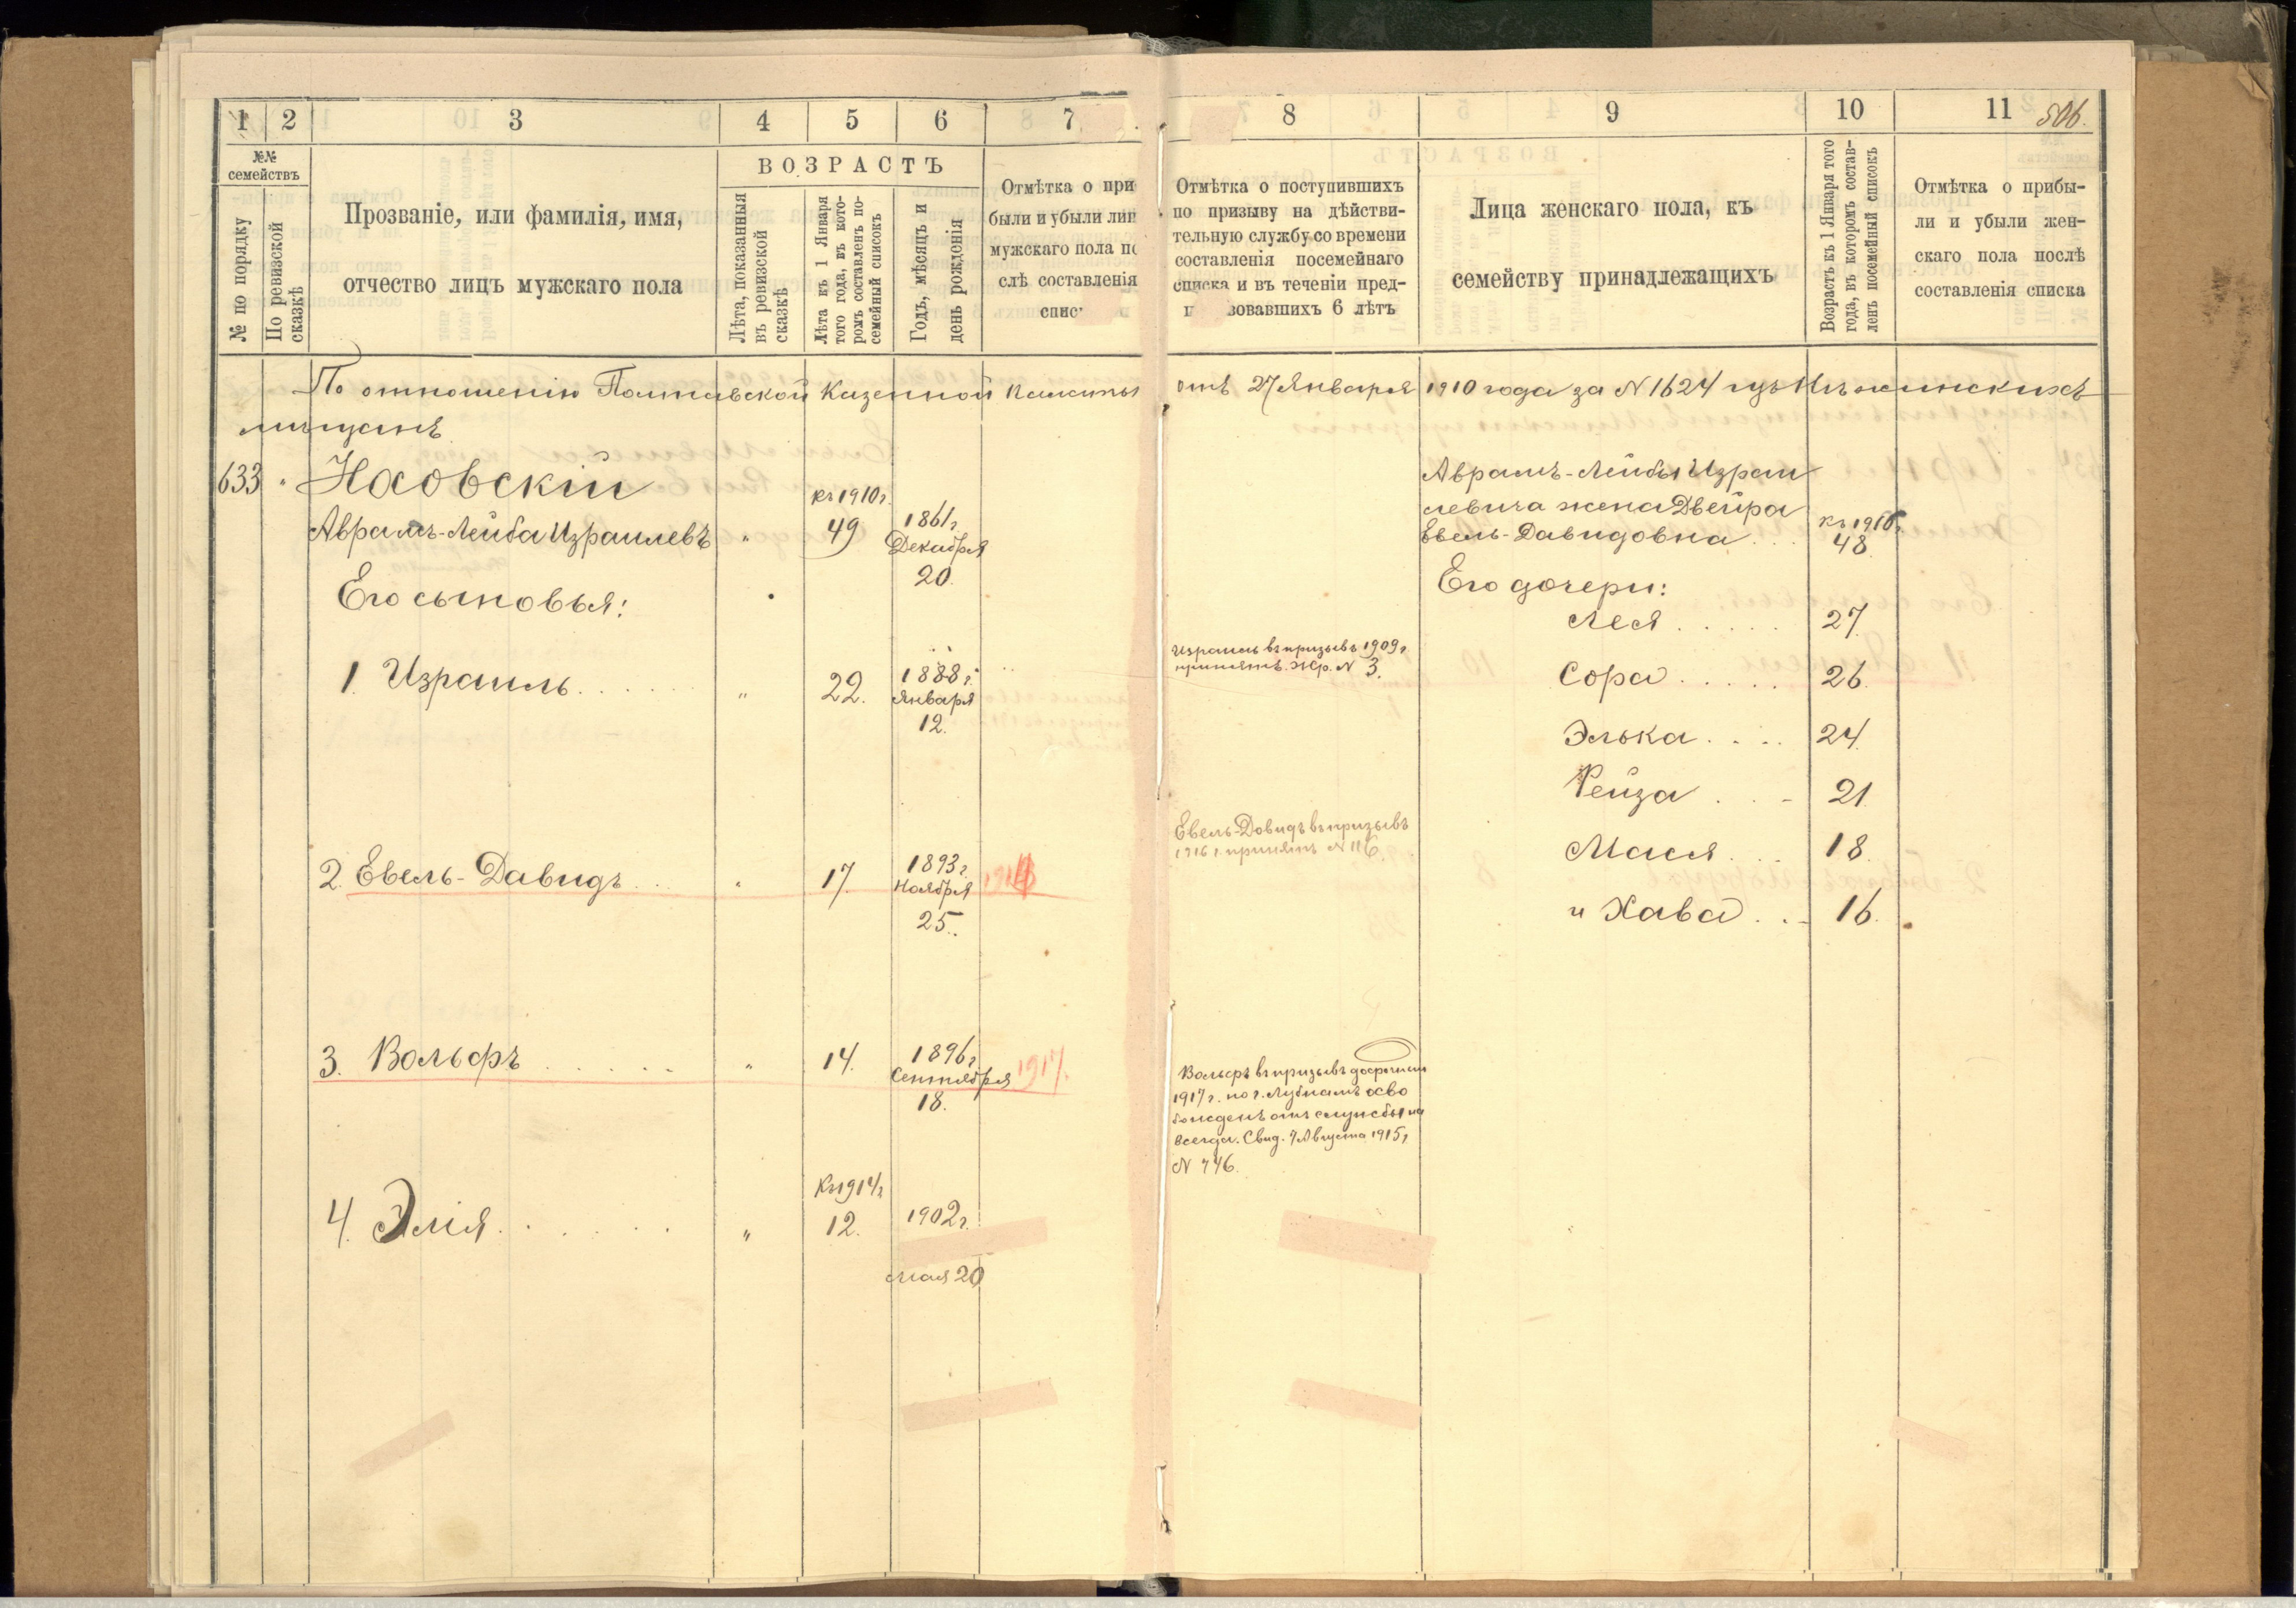 1 2 3 4 5 6 7
8 9 10 11 506.
№№ семействъ
№ по порядку
По ревизской сказкѣ
Прозваніе, или фамилія, имя,
отчество лицъ мужскаго пола
ВОЗРАСТЪ
Лѣта, показанныя
въ ревизской
сказкѣ
Лѣта къ 1 Января
того года, въ кото-
ромъ составленъ по-
семейный списокъ
Годъ, мѣсяцъ и
день рожденія
Отмѣтка о при
были и убыли лиц
мужскаго пола по
слѣ составленія
спис
Отмѣтка о поступившихъ
по призыву на дѣйстви-
тельную службу со времени
составленія посемейнаго
списка и въ теченіи пред-
зовавшихъ 6 лѣтъ
Лица женскаго пола, къ
семейству принадлежащихъ
Возрастъ къ 1 Января того
года, въ которомъ состав-
ленъ посемейный списокъ
Отмѣтка о прибы-
ли и убыли жен-
скаго пола послѣ
составленія списка
По отношенію Полтавской Казенной Палаты отъ 27 Января 1910 года за N 1624 изъ Нѣжинскихъ
мѣщанъ
633 " Носовскій
къ 1910 г.
Аврамъ-Лейба Израилевъ " 49 1861 г.
Декабря
20.
Его сыновья:
1. Израиль " 22. 1888 г.
Января
12.
2. Евель-Давидъ " 17. 1893 г.
Ноября
25.
3. Вольфъ " 14. 1896 г. 1917.
Сентября
18.
Къ 1914 г.
4. Элія " 12. 1902 г.
мая 20
Израиль въ призывъ 1909 г.
принятъ. Жр. N 3.
Евель-Довидъ въ призывъ
1916 г. принятъ N 116.
Вольфъ въ призывъ досрочный
1917 г. по г. Лубнамъ осво
божденъ отъ службы на
всегда. Свид. Августа 1915 г.
N 746.
Аврамъ-Лейбы Израи
левича жена Двейра
Евель-Давидовна къ 1910 г.
48.
Его дочери:
Леся 27.
Сора 26.
Элька 24.
Рейза 21.
Мася 18.
и Хава 16.